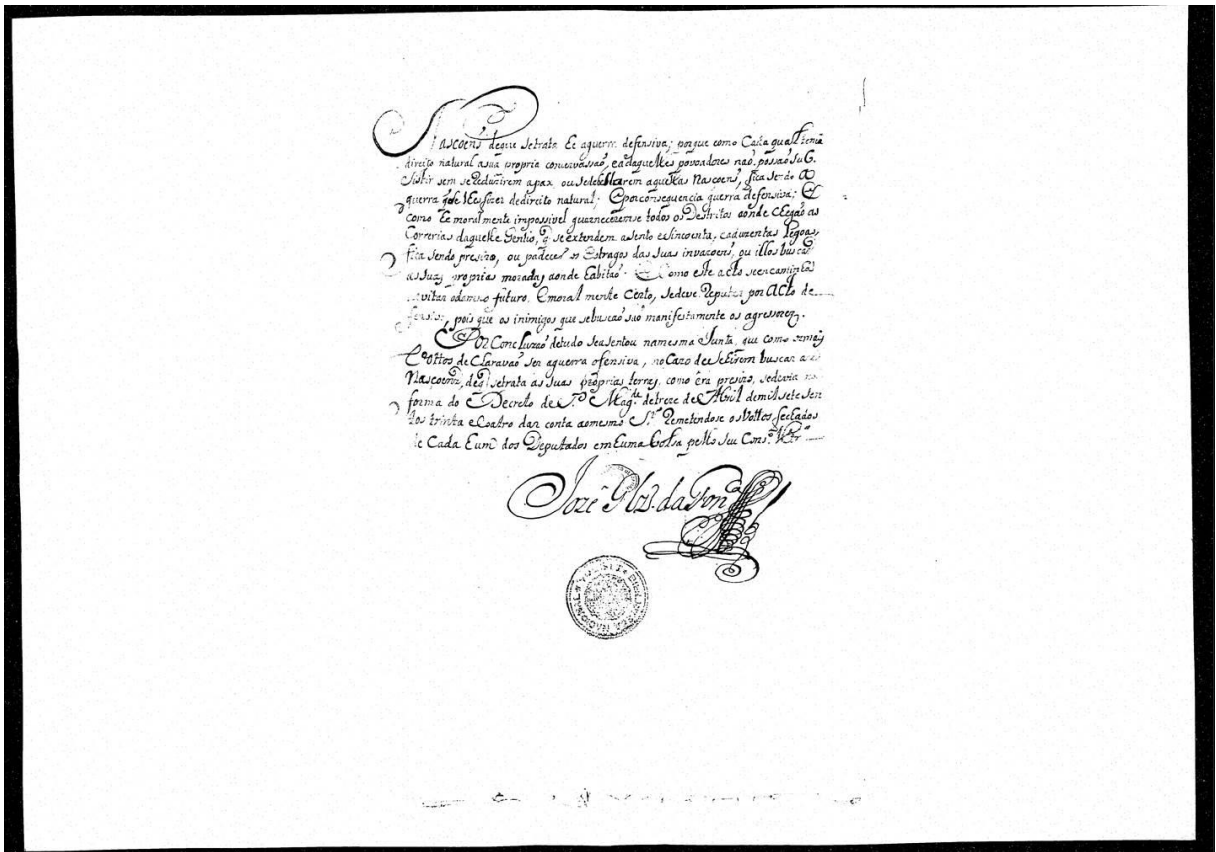 Nascoens deque setrata he aguerra defensiva; porque como Cada qual tem
direito natural asua propria concervassaõ, eadaquelles povoadores naõ possaõ Sub
sistir sem seReduzirem apax, ou sedebellarem aquellas Nascoens, fica sendo a
guerra q̃ selhesfizer dedireito natural; Eporconsequencia guerra defensiva; E
como he moralmente impossivel guarneceremse todos os Destritos aonde chegaõ as
Correrias daquelle Gentio, q̃ se extendem asento esincoenta, eaduzentas legoas,
fica sendo presizo, ou padecer os Estragos das suas invazoens, ou illos buscar
assuas proprias moradas aonde habitaõ. E Como este acto seencaminha
evitar odamno futuro, Emoralmente Certo, sedeve Reputar por Acto de
fensivo, pois que os inimigos que sebuscaõ saõ manifestamente os agressores.
Por Concluzaõ detudo seasentou namesma Junta, que como
Vottos declaravaõ ser aguerra ofensiva, no Cazo de sehirem buscar as
Nascoens, deq̃ setrata as suas proprias terras, como era presizo, sedevia na
forma do Decreto de S. Mag.de detreze de Abril demil sete sen
tos trinta eCoatro dar conta aomesmo S.r Remetendose os Vottos fechados
de Cada hum dos Deputados em huma bolsa pello seu Cons.o Ultr.o
Joze Glz. da Fon.ca